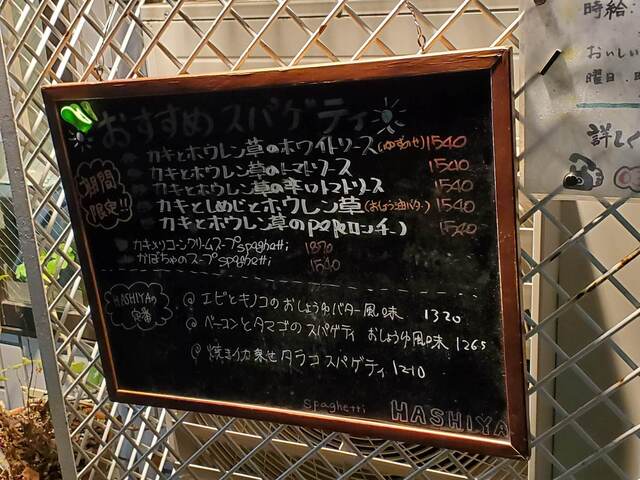 おすすめスパゲティ
期間限定!!
カキとホウレン草のホワイトソース(ゆずのせ) 1540
カキとホウレン草のトマトソース 1540
カキとホウレン草の辛口トマトソース 1540
カキとしめじとホウレン草(おしょう油バター) 1540
カキとホウレン草のpepeロンチーノ 1540
カキ入りコーンクリームスープspaghetti 1370
かぼちゃのスープspaghetti 1540
HASHIYAの定番
@ エビとキノコのおしょうゆバター風味 1320
@ ベーコンとタマゴのスパゲティ おしょうゆ風味 1265
@ 焼きイカ乗せタラコスパゲティ 1210
spaghetti HASHIYA
時給:
おいしい
曜日.
詳しく